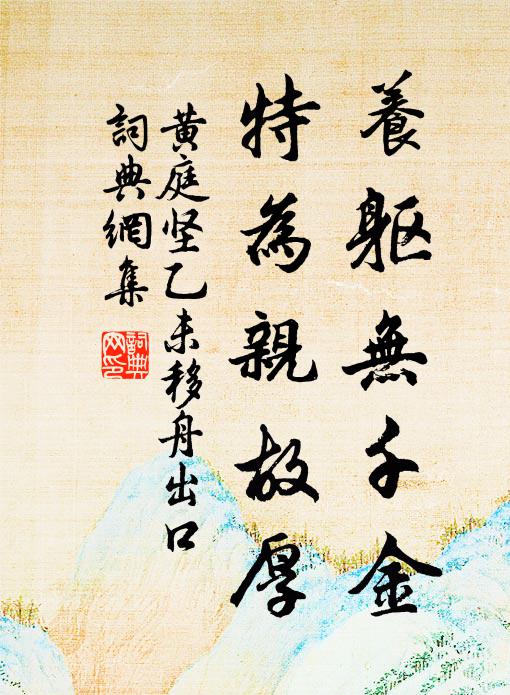 養軀無千金
特為親故厚
黄庭坚乙未移舟出口
詞典網集
詞典
网印